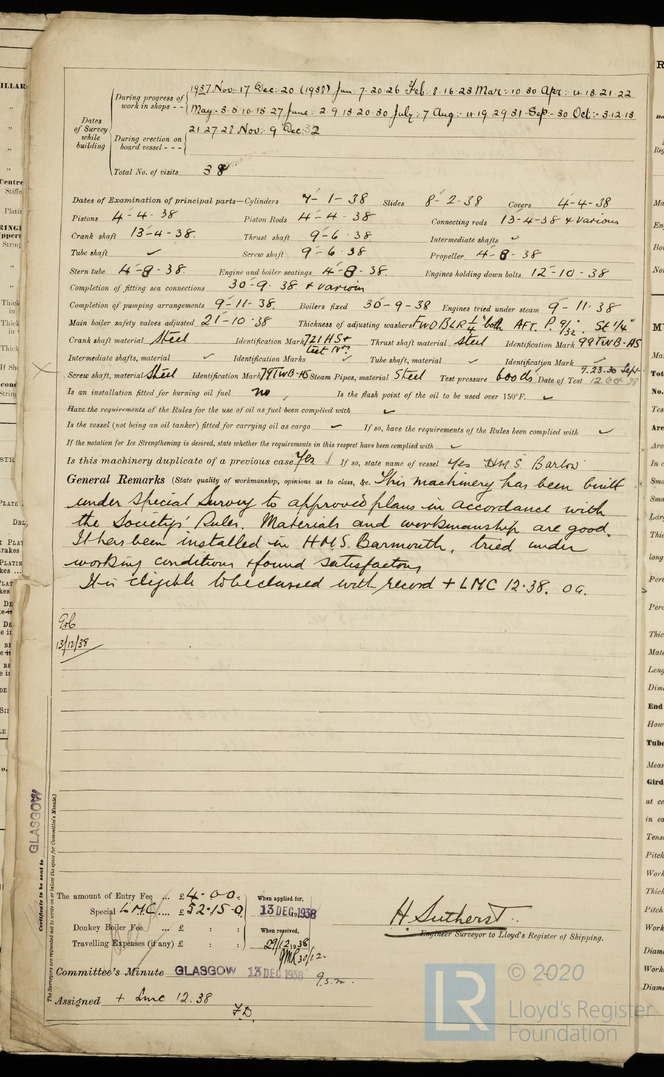 1937. Nov: 17 Dec: 20 (1938) Jan: 7. 20 26 Feb: 8. 16 23 Mar: 10 30 Apr: 4. 13. 21. 22
During progress of work in shops - -
May 10 June: 2. 9. 13 20 30 July: 7 Aug: 4 19 29 31 Sep: 30 Oct: 3. 12. 13
Dates of Survey while building
During erection on board vessel - - -
21 27 28 Nov: 9 Dec:
Total No. of visits 38
Dates of Examination of principal parts—Cylinders 7-1-38 Slides 8-2-38 Covers 4-4-38
Pistons 4-4-38 Piston Rods 4-4-38 Connecting rods 13-4-38 & various
Crank shaft 13-4-38. Thrust shaft 9-6-38 Intermediate shafts ✓
Tube shaft ✓ Screw shaft 9-6-38 Propeller 4-8-38
Stern tube 4-8-38. Engine and boiler seatings 4-8-38. Engines holding down bolts 12-10-38
Completion of fitting sea connections 30-9-38 & various
Completion of pumping arrangements 9-11-38. Boilers fixed 30-9-38 Engines tried under steam 9-11-38
Main boiler safety valves adjusted 21-10-38 Thickness of adjusting washers FWD BLR 1/4" both AFT. P. 9/32 St 1/4"
Crank shaft material Steel Identification Mark 721 HS & Thrust shaft material Steel Identification Mark 99TWB-AS
Intermediate shafts, material ✓ Identification Marks ✓ Tube shaft, material ✓ Identification Mark ✓
Screw shaft, material Steel Identification Mark 79TWB-AS Steam Pipes, material Steel Test pressure 600 lbs Date of Test 7. 23. 30 Sept
12. Oct 38
Is an installation fitted for burning oil fuel no Is the flash point of the oil to be used over 150°F. ✓
Have the requirements of the Rules for the use of oil as fuel been complied with ✓
Is the vessel (not being an oil tanker) fitted for carrying oil as cargo ✓ If so, have the requirements of the Rules been complied with ✓
If the notation for Ice Strengthening is desired, state whether the requirements in this respect have been complied with ✓
Is this machinery duplicate of a previous case Yes If so, state name of vessel Yes HMS Barlow
General Remarks (State quality of workmanship, opinions as to class, &c. This machinery has been built
under Special Survey to approved plans in accordance with
the Society's Rules. Materials and workmanship are good.
It has been installed in H.M.S. Barmouth, tried under
working conditions & found satisfactory
It is eligible to be classed with record + LMC 12.38. OG.
13/12/38
GLASGOW
Certificate to be sent to
The Surveyors are requested not to write on or below the space for Committee's Minute.
The amount of Entry Fee ... £ 4-0-0:
Special LMC ... £ 52-15-0
Donkey Boiler Fee ... £ : :
Travelling Expenses (if any) £ : :
When applied for,
13 DEC. 1938
When received,
29/12 1938
30/12
H. Sutherst.
Engineer Surveyor to Lloyd's Register of Shipping.
Committee's Minute GLASGOW 13 DEC 1938
Assigned + Lmc 12.38
F.D.
LR
© 2020
Lloyd's Register
Foundation